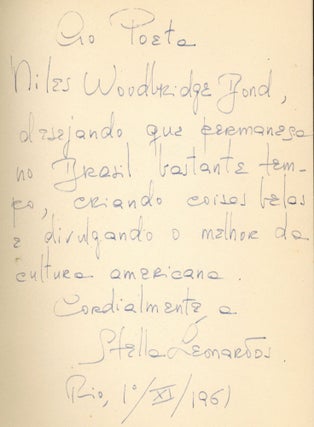 Ao Poeta
Niles Woodbridge Bond,
desejando que permaneça
no Brasil bastante tem-
po, criando coisas belas
e divulgando o melhor da
cultura americana.
Cordialmente a
Stella Leonardos.
Rio, 1º/XI/1961